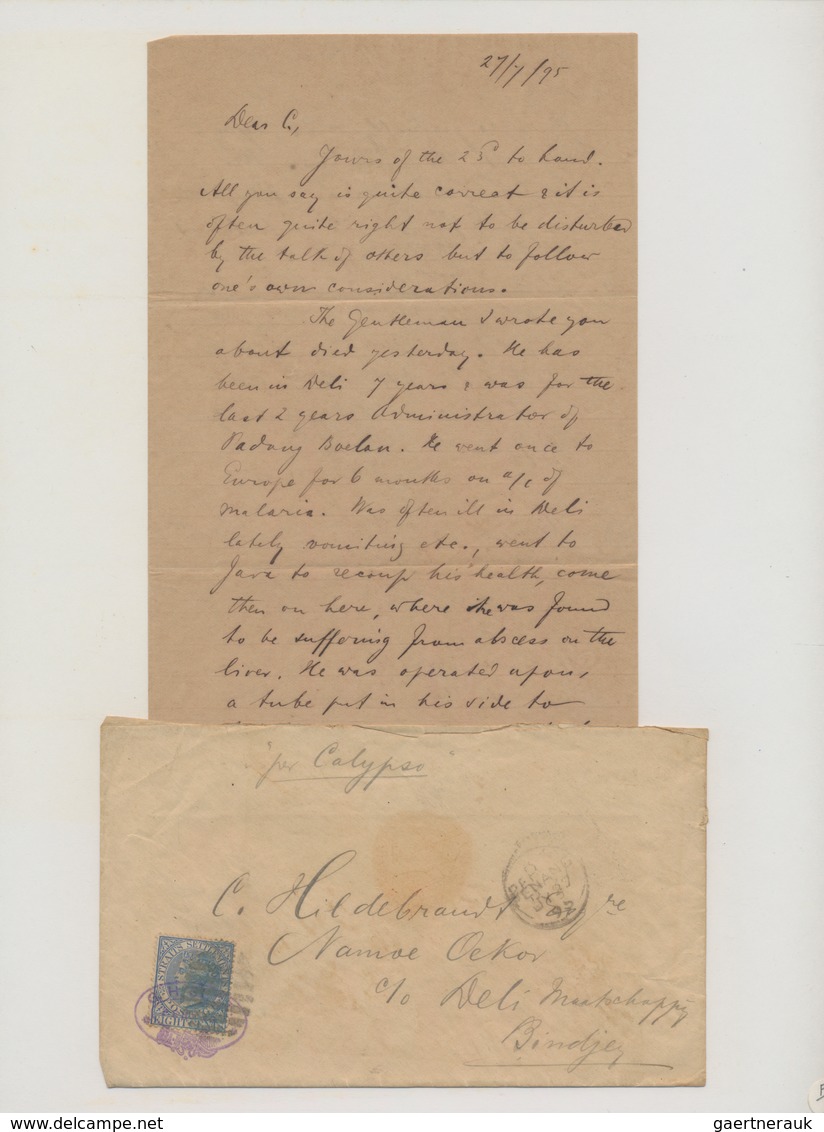 27/7/95
Dear C.,
Yours of the 23d to hand.
All you say is quite correct & it is
often quite right not to be disturbed
by the talk of others but to follow
one's own considerations.
The Gentleman I wrote you
about died yesterday. He has
been in Deli 7 years & was for the
last 2 years Administrator of
Padang Boelan. He went once to
Europe for 6 months on a/c of
malaria. Was often ill in Deli
lately vomiting etc., went to
Java to recoup his health, come
then on here, where he was found
to be suffering from abscess on the
liver. He was operated upon,
a tube put in his side to
"per Calypso"
C. Hildebrandt
Namoe Oekor
c/o Deli Maatschappij
Bindjey
STRAITS SETTLEMENTS
EIGHT CENTS
PENANG
gaertnerauk
www.delcampe.net